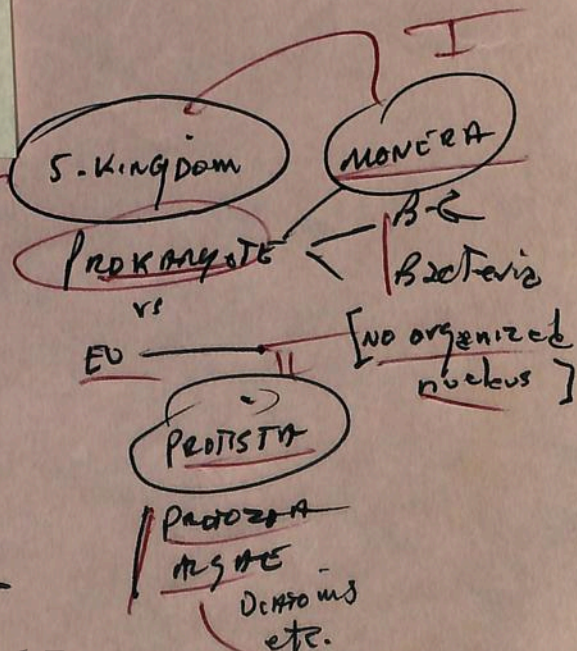 I
5-KINGDOM
MONERA
PROKARYOTE
B-G
Bacteria
vs
EU
[NO organized
nucleus]
II
PROTISTA
PROTOZOA
ALGAE
DIATOMS
etc.